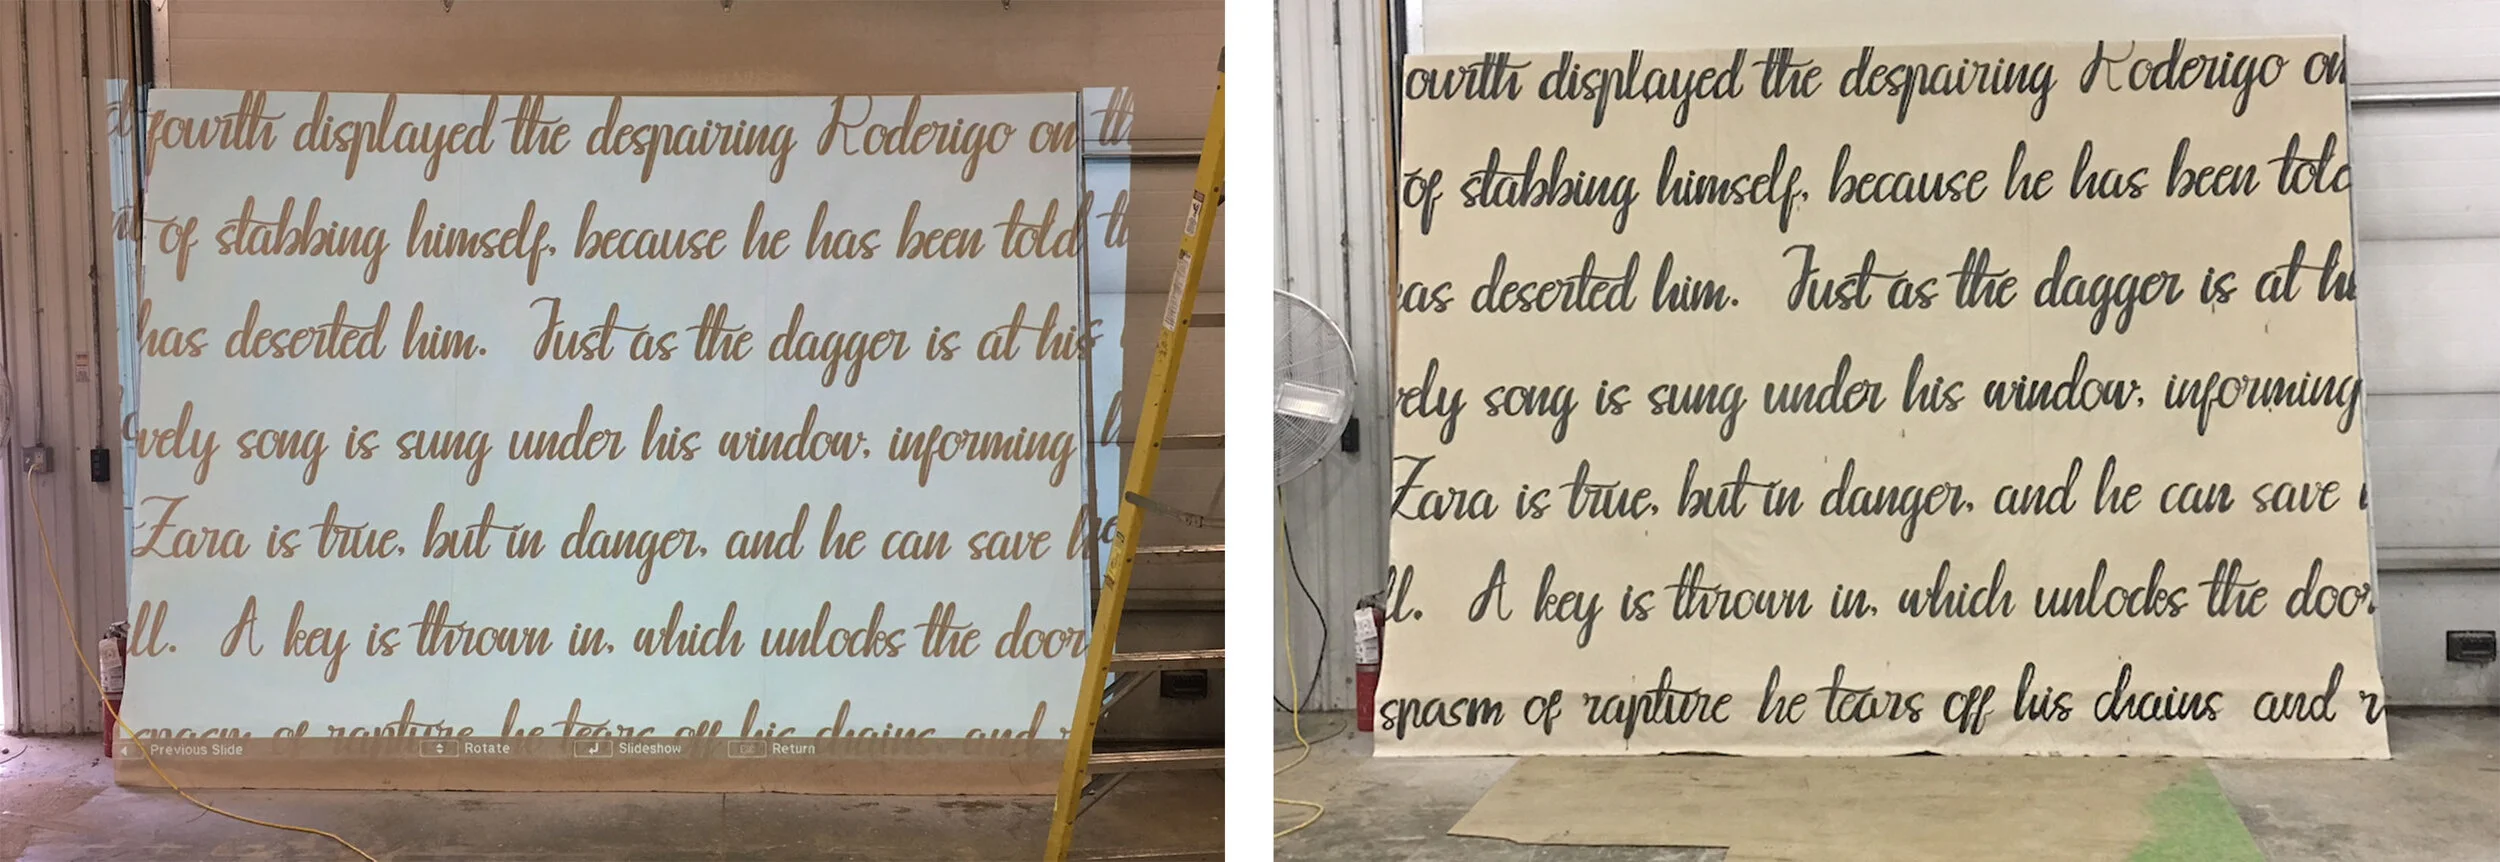 fourth displayed the despairing Roderigo on th
of stabbing himself, because he has been told th
has deserted him. Just as the dagger is at his
vely song is sung under his window, informing h
Zara is true, but in danger, and he can save he
ll. A key is thrown in, which unlocks the door
spasm of rapture he tears off his chains and r
Previous Slide Rotate Slideshow Return
ourth displayed the despairing Roderigo on
of stabbing himself, because he has been told
as deserted him. Just as the dagger is at hi
ely song is sung under his window, informing
Zara is true, but in danger, and he can save
ll. A key is thrown in, which unlocks the door
spasm of rapture he tears off his chains and r